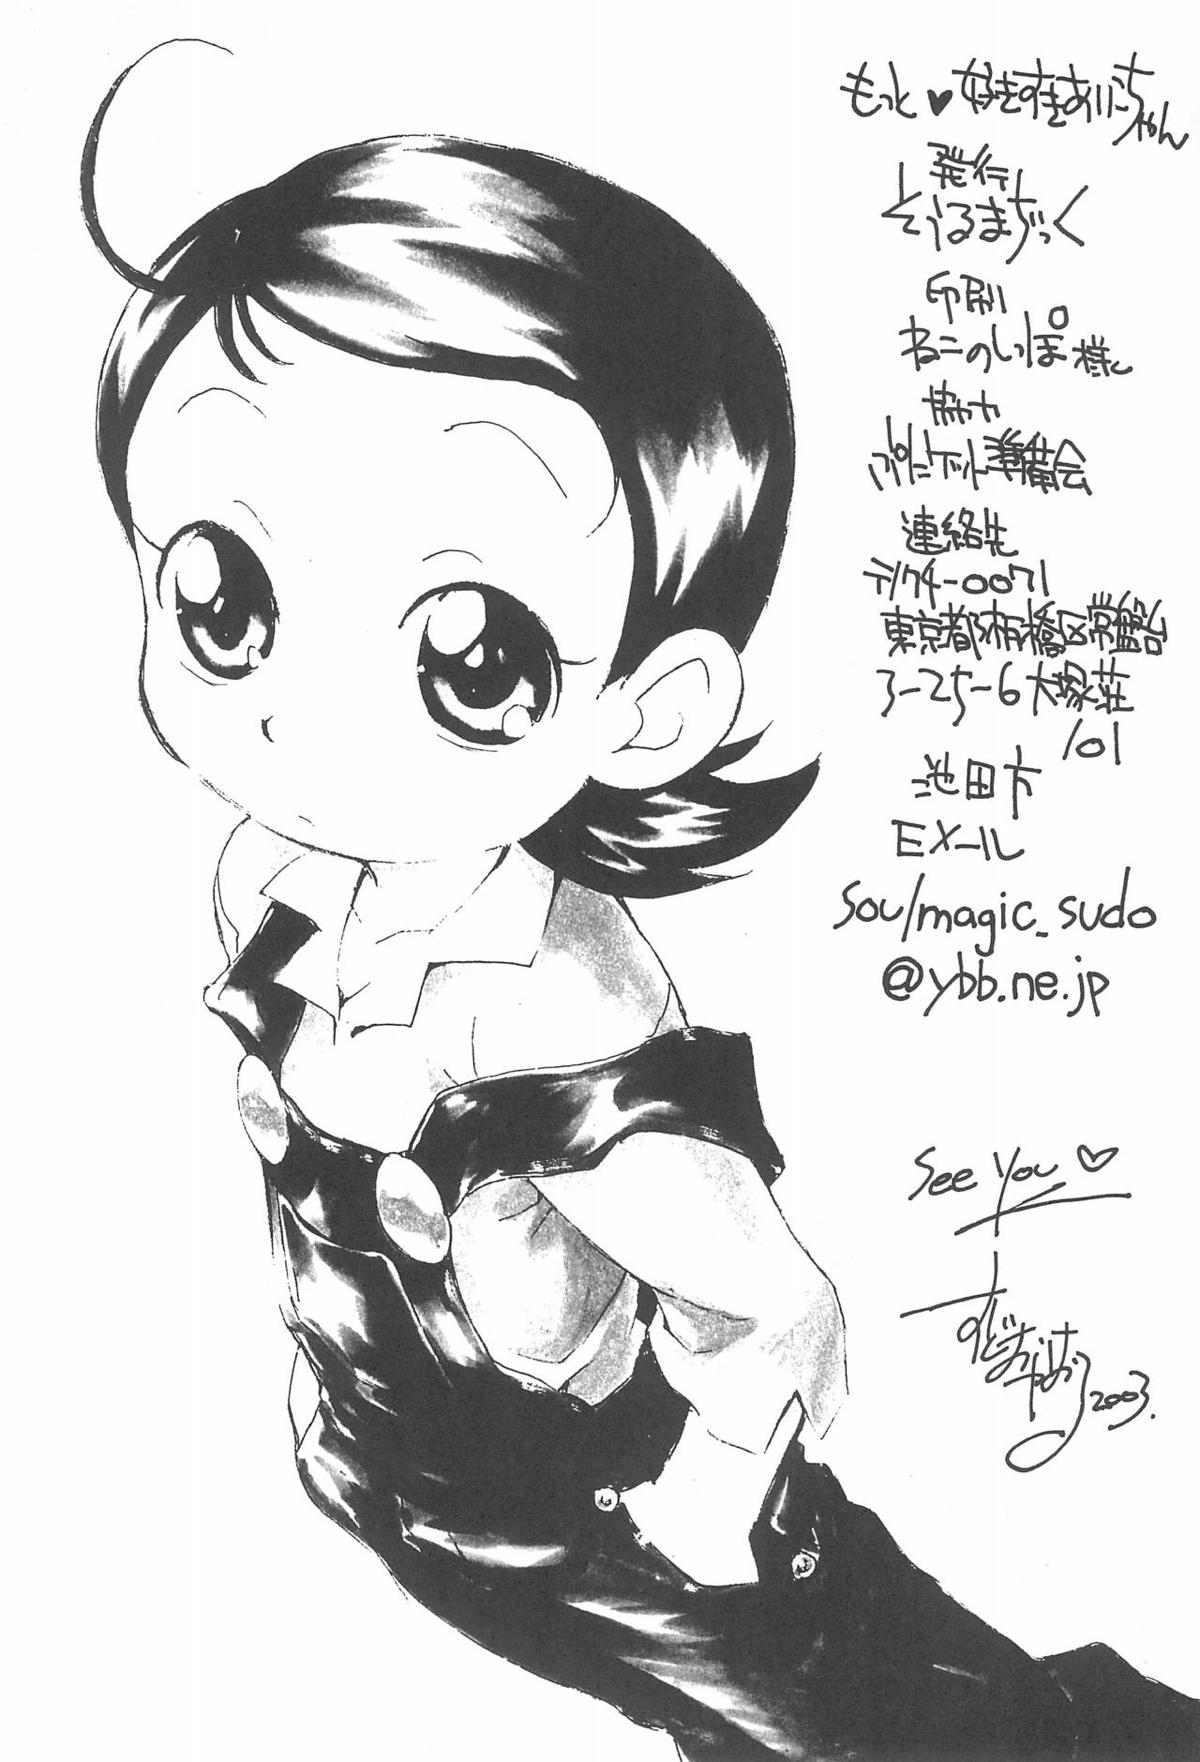 もっと♥好きすきあいこちゃん
発行
そうるまぢっく
印刷
ねこのしっぽ様
協力
ぷにケット準備会
連絡先
〒174-0071
東京都板橋区常盤台
3-25-6大塚荘
101
池田方
Eメール
soulmagic_sudo
@ybb.ne.jp
See You♡
すどおかおる
2003.